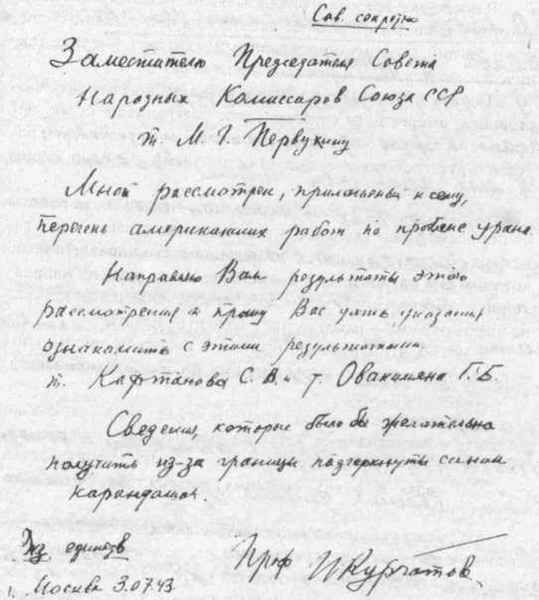 Сов. секретно
Заместителю Председателя Совета
Народных Комиссаров Союза ССР
т. М. Г. Первухину
Мной рассмотрен, приложенный к сему,
перечень американских работ по проблеме урана
Направляю Вам результаты этого
рассмотрения и прошу Вас дать указания
ознакомить с этими результатами
т. Кафтанова С. В. и т. Овакимяна Г. Б.
Сведения, которые было бы желательно
получить из-за границы подчеркнуты синим
карандашом.
Экз единств
Проф И Курчатов
Москва 3.07.43